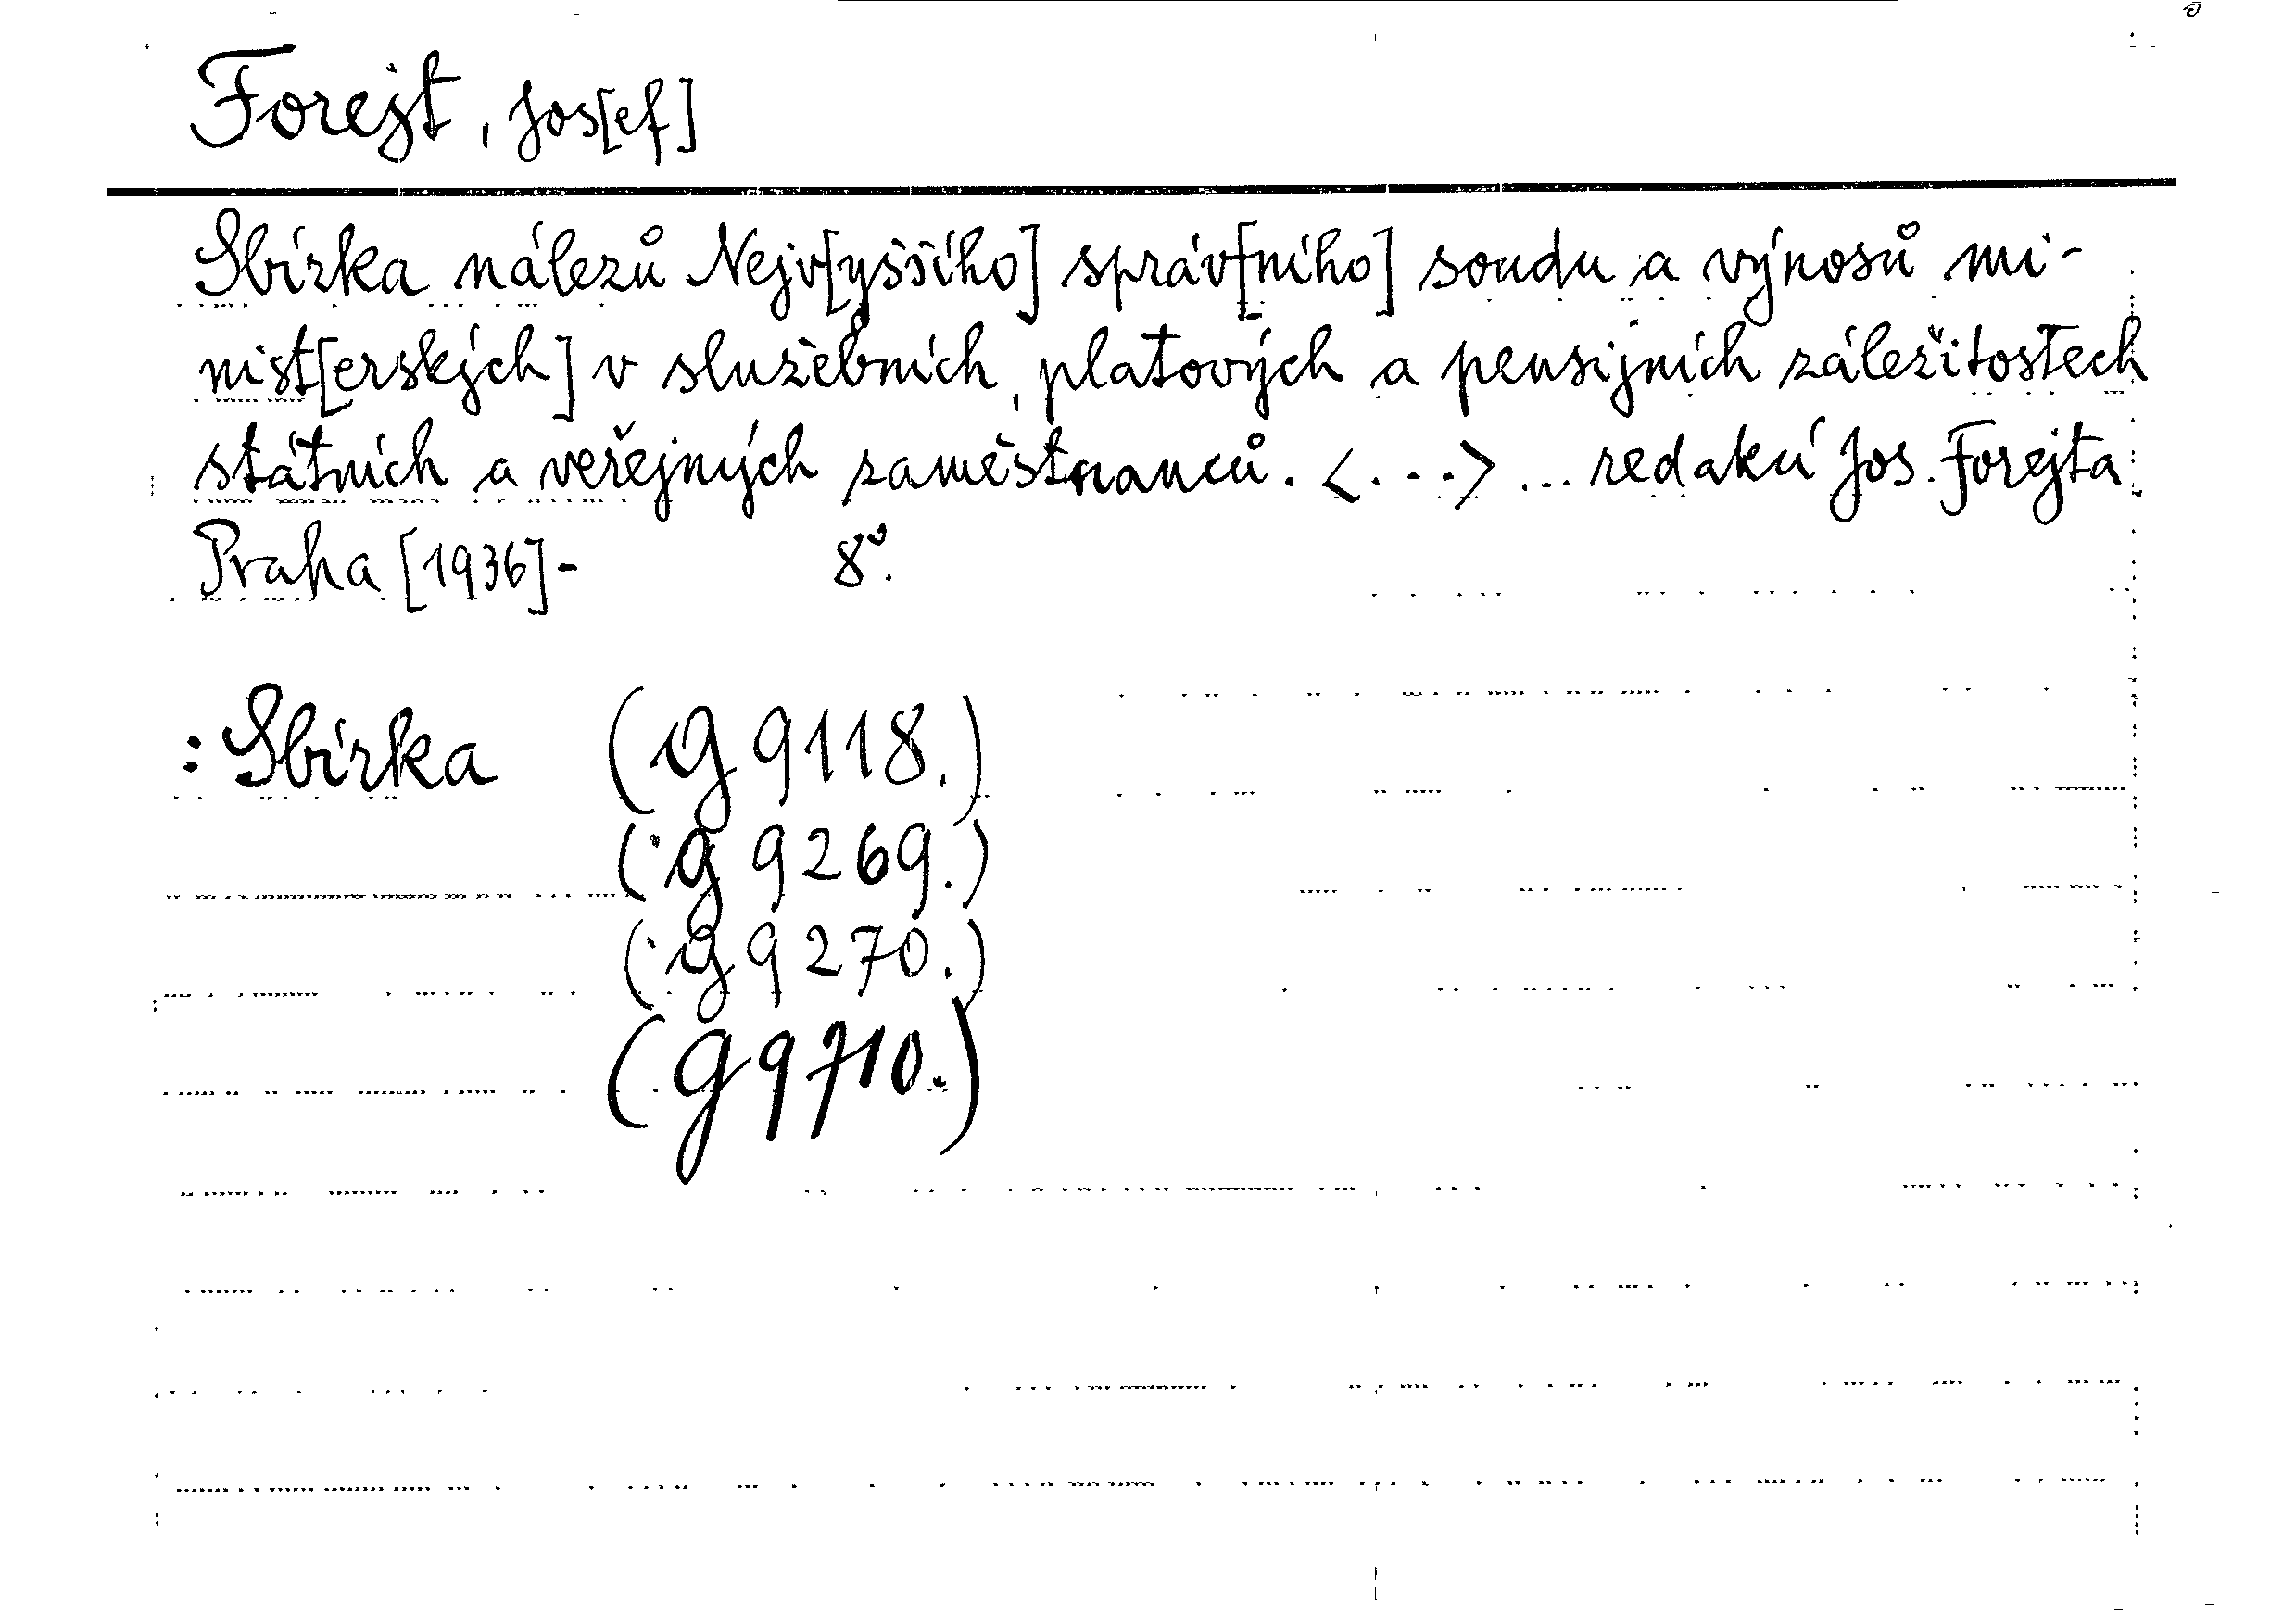 Forejt, Jos[ef]
Sbírka nálezů Nejv[yššího] správ[ního] soudu a výnosů mi-
nist[erských] v služebních, platových a pensijních záležitostech
státních a veřejných zaměstnanců. <...> ... redakcí Jos. Forejta
Praha [1936]- 8°.
: Sbírka (g 9118.)
(g 9269.)
(g 9270.)
(g 9710.)